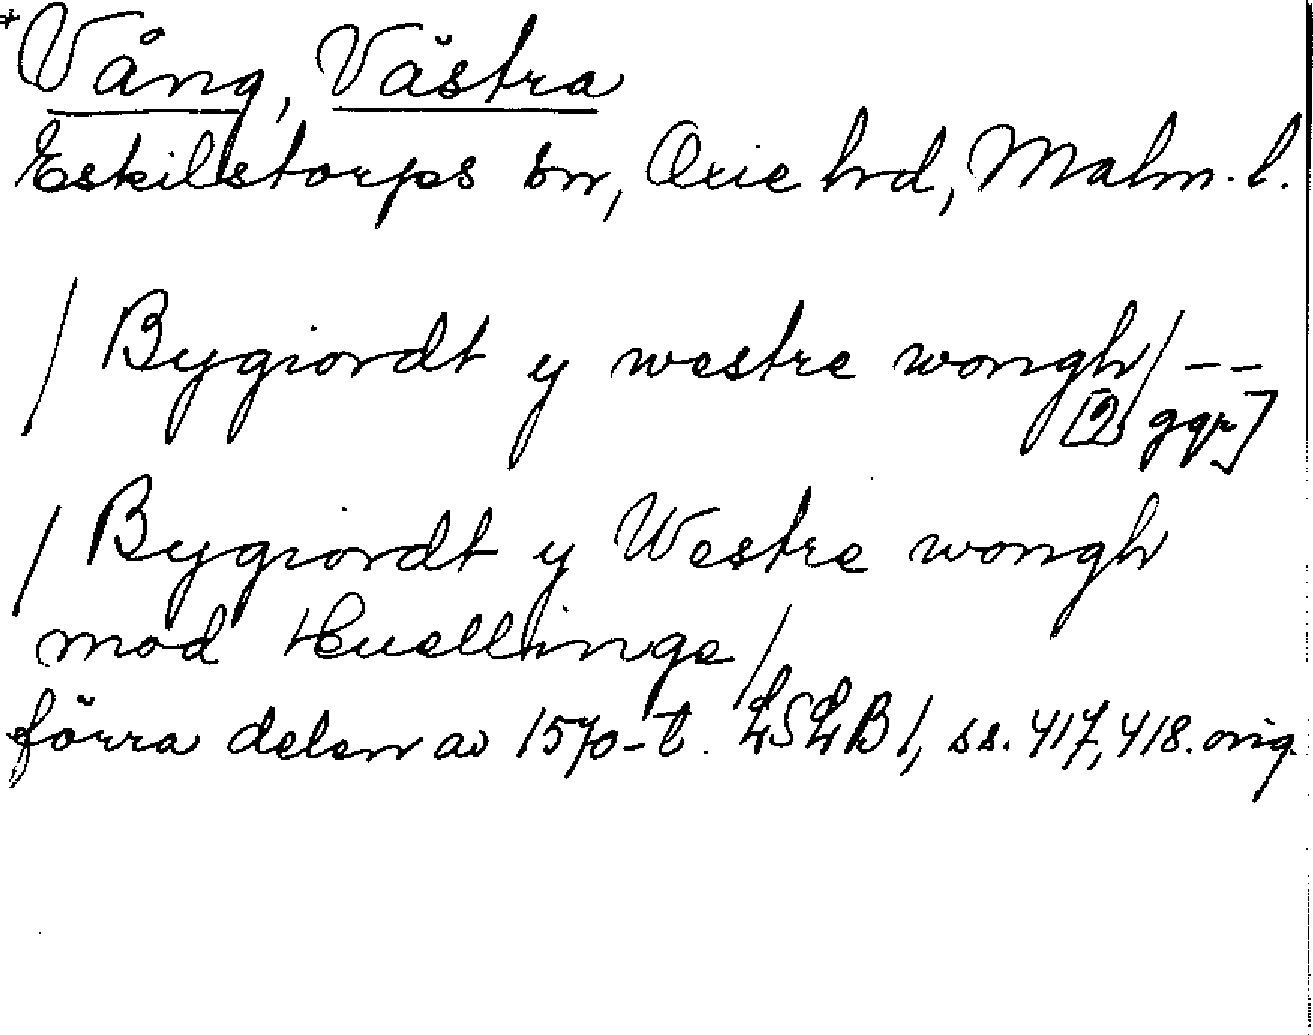 *Vång, Västra
Eskilstorps sn, Oxie hrd, Malm. l.
/ Bygiordt y westre wongh / --
[2 ggr]
/ Bygiordt y Westre wongh
mod Huellinge /
förra delen av 1570-t. LSLB 1, ss. 417, 418. orig.